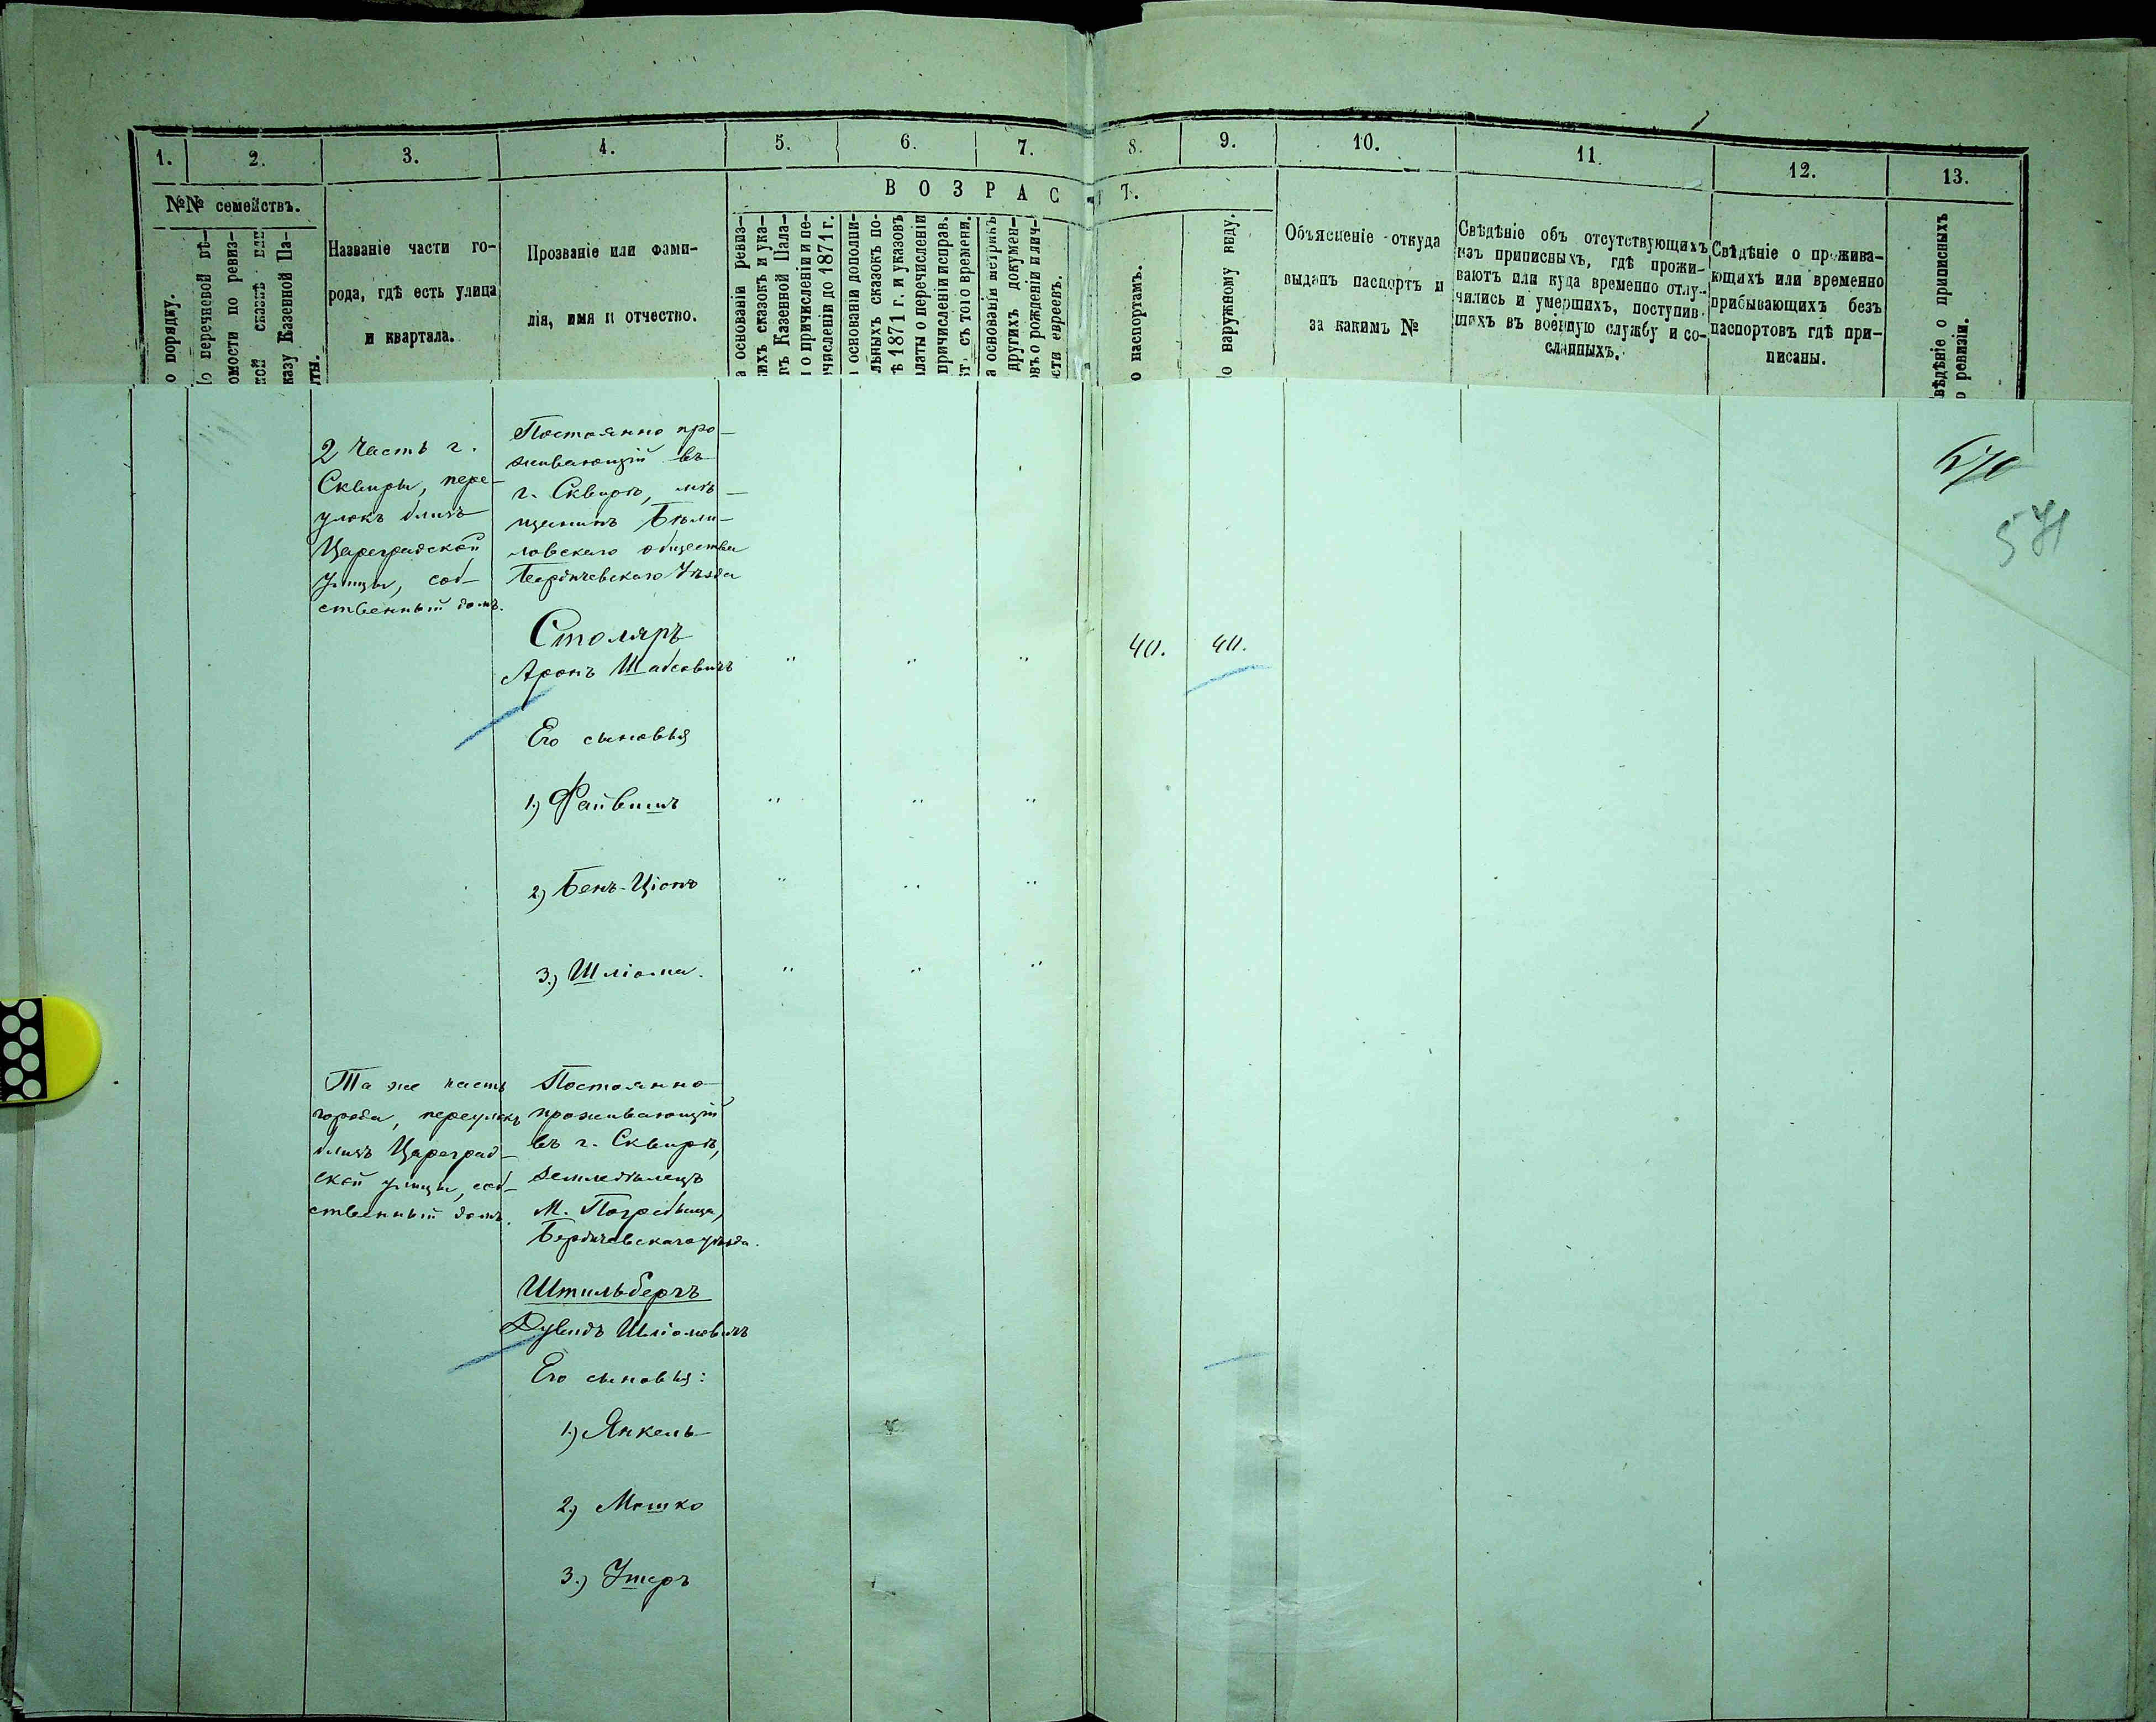 1. 2. 3. 4. 5. 6. 7. 8. 9. 10. 11. 12. 13.
№№ семействъ.
В О З Р А С Т.
о порядку.
о перечневой вѣ-
омости по ревиз-
ной сказкѣ или
казу Казенной Па-
ты.
Названіе части го-
рода, гдѣ есть улица
и квартала.
Прозваніе или фами-
лія, имя и отчество.
а основаніи ревиз-
кихъ сказокъ и ука-
въ Казенной Пала-
ы о причисленіи и пе-
ечисленіи до 1871 г.
основаніи дополни-
льныхъ сказокъ по-
ѣ 1871 г. и указовъ
алаты о перечисленіи
причисленіи исправ.
съ того времени.
а основаніи метрикъ
другихъ докумен-
овъ о рожденіи и лич-
сти евреевъ.
о паспортамъ.
о наружному виду.
Объясненіе откуда
выданъ паспортъ и
за какимъ №
Свѣдѣніе объ отсутствующихъ
изъ приписныхъ, гдѣ прожи-
ваютъ или куда временно отлу-
чились и умершихъ, поступив-
шихъ въ военную службу и со-
сланныхъ.
Свѣдѣніе о прожива-
ющихъ или временно
прибывающихъ безъ
паспортовъ гдѣ при-
писаны.
вѣдѣніе о приписныхъ
о ревизіи.
571
2 Часть г.
Сквиры, пере-
улокъ близъ
Цареградской
улицы, соб-
ственный домъ.
Постоянно про-
живающій въ
г. Сквирѣ, мѣ-
щанинъ Бѣли-
ловскаго общества
Бердичевскаго Уѣзда
Столяръ
Аронъ Шабсовичъ " " " 40. 40.
Его сыновья
1.) Файвишъ " " "
2.) Бенъ-Ціонъ " " "
3.) Шліома. " " "
Та же часть
города, переулокъ
близъ Цареград-
ской улицы, соб-
ственный домъ.
Постоянно
проживающій
въ г. Сквирѣ,
земледѣлецъ
М. Погребища,
Бердичевскаго уѣзда.
Штильбергъ
Дувидъ Шліомовичъ
Его сыновья:
1.) Янкель
2.) Мошко
3.) Ушеръ